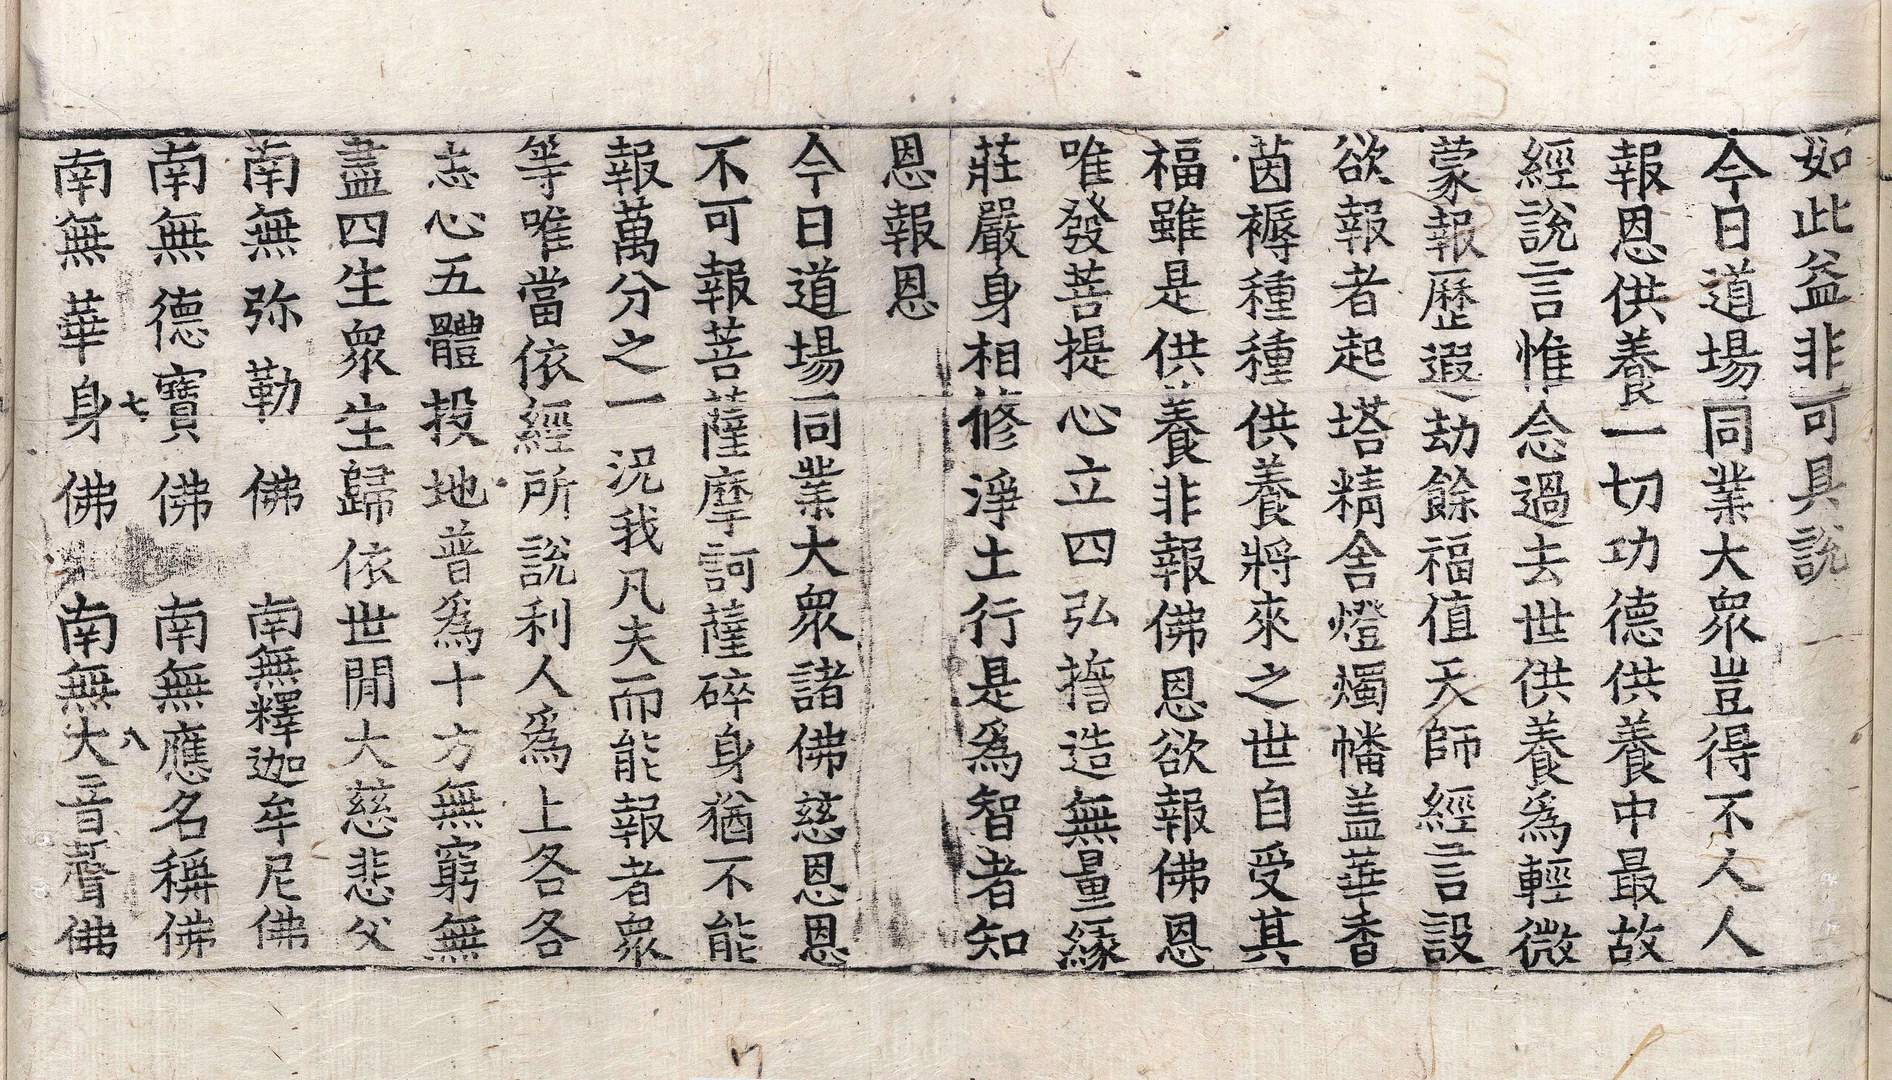 如此益非可具說
今日道場同業大眾豈得不人人
報恩供養一切功德供養中最故
經說言惟念過去世供養爲輕微
蒙報歷遐劫餘福值天師經言設
欲報者起塔精舍燈燭幡盖華香
茵褥種種供養將來之世自受其
福雖是供養非報佛恩欲報佛恩
唯發菩提心立四弘擔造無量緣
莊嚴身相修淨土行是爲智者知
恩報恩
今日道場同業大眾諸佛慈恩恩
不可報菩薩摩訶薩碎身猶不能
報萬分之一況我凡夫而能報者眾
等唯當依經所說利人爲上各各
志心五體投地普爲十方無窮無
盡四生眾生歸依世間大慈悲父
南無弥勒佛 南無釋迦牟尼佛
南無德寶佛 南無應名稱佛
七 八
南無華身佛 南無大音聲佛